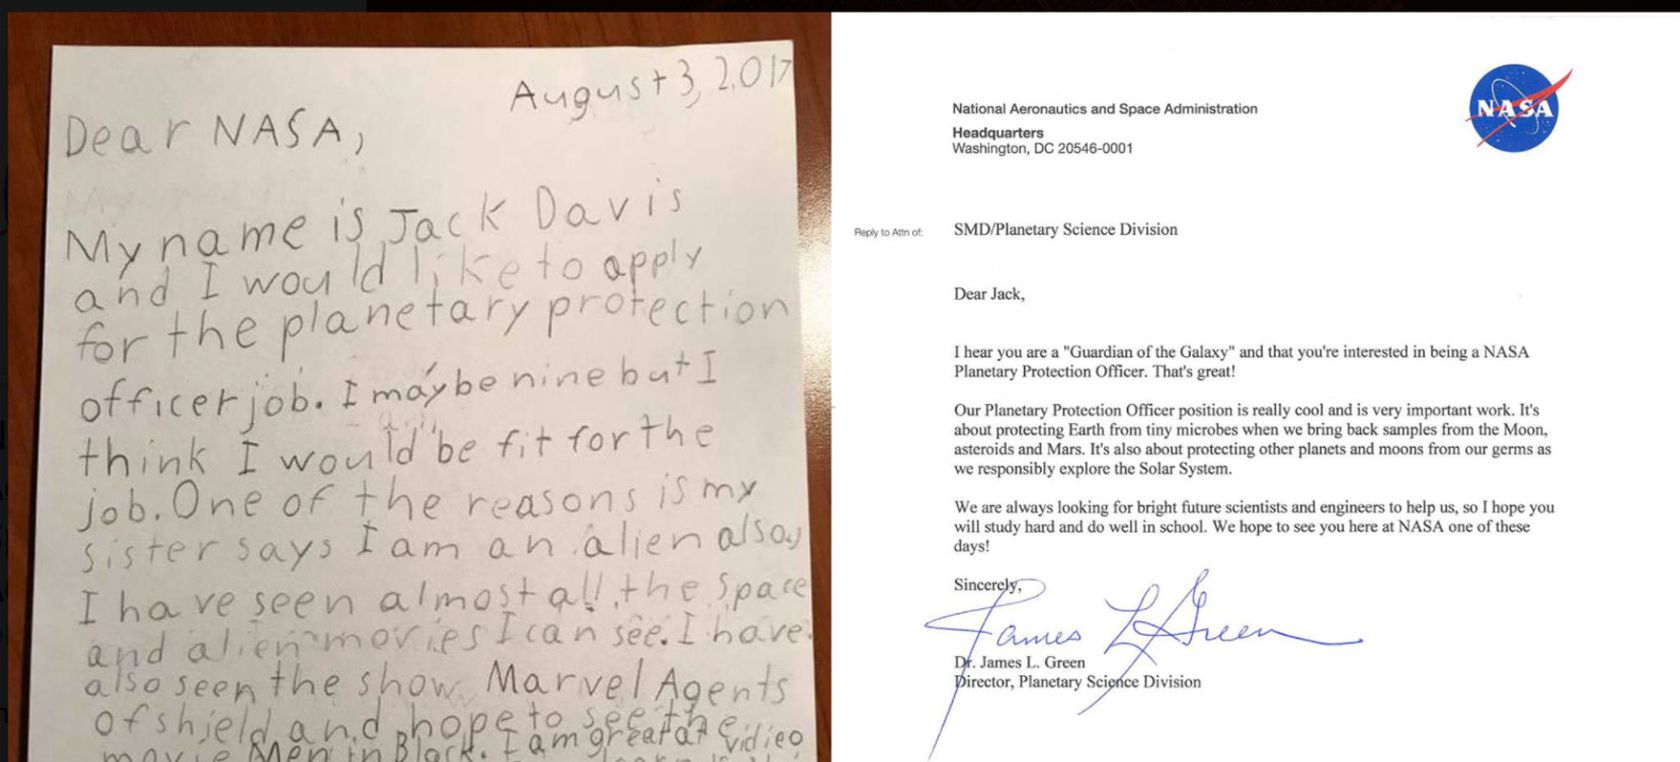 August 3, 2017
Dear NASA,
My name is Jack Davis
and I would like to apply
for the planetary protection
officer job. I may be nine but I
think I would be fit for the
job. One of the reasons is my
sister says I am an alien also,
I have seen almost all the space
and alien movies I can see. I have
also seen the show Marvel Agents
of shield and hope to see the
movie Men in Black. I am great at vidieo
National Aeronautics and Space Administration
Headquarters
Washington, DC 20546-0001
NASA
Reply to Attn of: SMD/Planetary Science Division
Dear Jack,
I hear you are a "Guardian of the Galaxy" and that you're interested in being a NASA
Planetary Protection Officer. That's great!
Our Planetary Protection Officer position is really cool and is very important work. It's
about protecting Earth from tiny microbes when we bring back samples from the Moon,
asteroids and Mars. It's also about protecting other planets and moons from our germs as
we responsibly explore the Solar System.
We are always looking for bright future scientists and engineers to help us, so I hope you
will study hard and do well in school. We hope to see you here at NASA one of these
days!
Sincerely,
James L Green
Dr. James L. Green
Director, Planetary Science Division